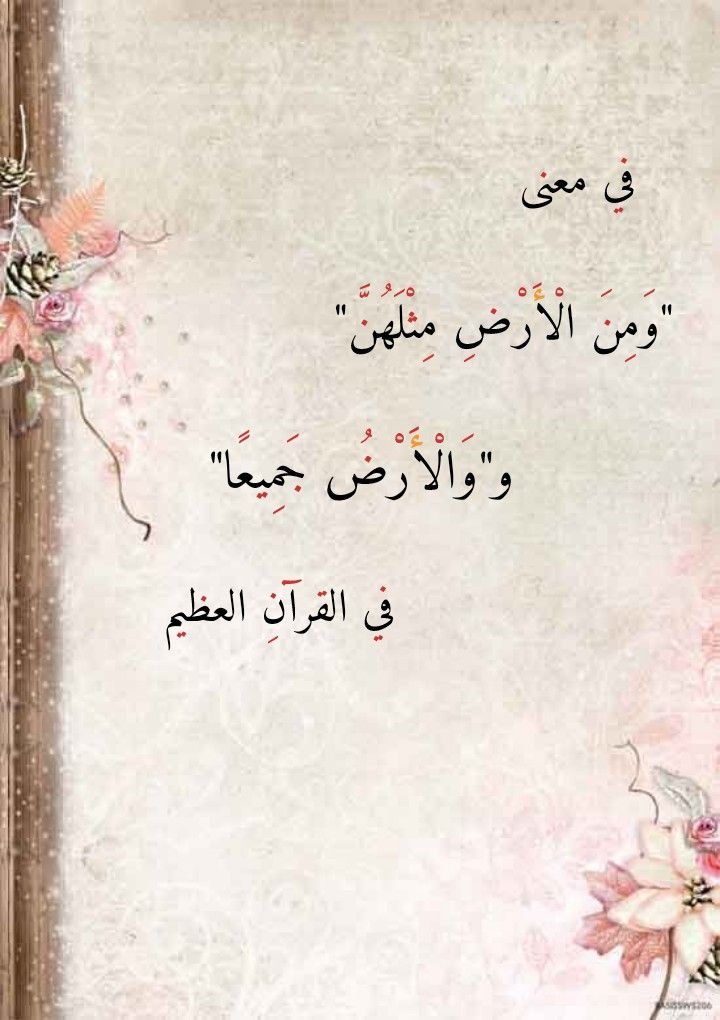 في معنى
"وَمِنَ الْأَرْضِ مِثْلَهُنَّ"
و"وَالْأَرْضُ جَمِيعًا"
في القرآنِ العظيم